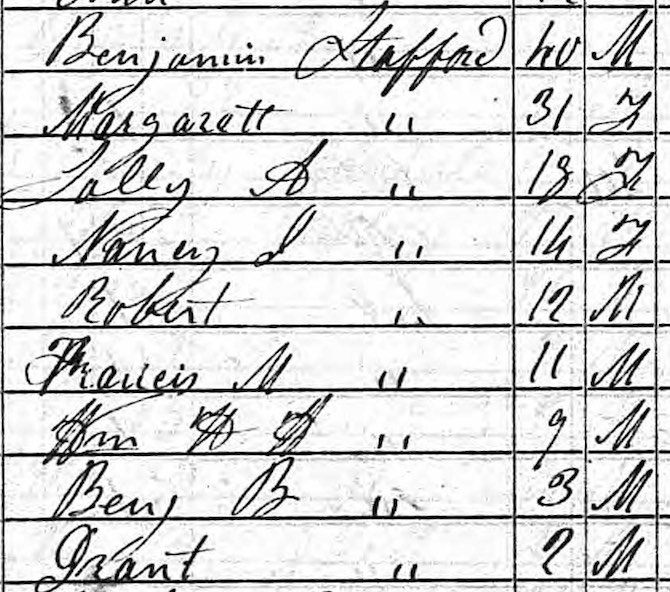 Benjamin Stafford 40 M
Margarett " 31 F
Sally A " 18 F
Nancy J " 14 F
Robert " 12 M
Francis M " 11 M
Wm H H " 9 M
Benj B " 3 M
Grant " 2 M